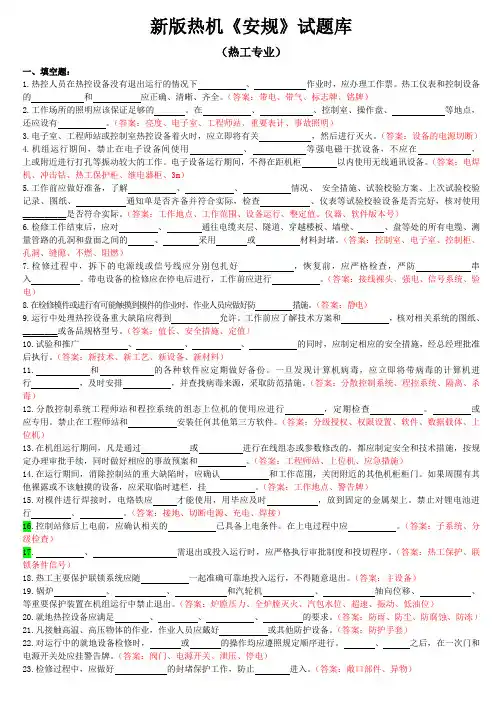 新版热机《安规》试题库
（热工专业）
一、填空题：
1.热控人员在热控设备没有退出运行的情况下________、________作业时，应办理工作票。热工仪表和控制设备
的________和________应正确、清晰、齐全。（答案：带电、带气、标志牌、铭牌）
2.工作场所的照明应该保证足够的________。在________、________、控制室、操作盘、________等地点，
还应设有________。（答案：亮度、电子室、工程师站、重要表计、事故照明）
3.电子室、工程师站或控制室热控设备着火时，应立即将有关________，然后进行灭火。（答案：设备的电源切断）
4.机组运行期间，禁止在电子设备间使用________、________等强电磁干扰设备，不应在________，
上或附近进行打孔等振动较大的工作。电子设备运行期间，不得在距机柜________以内使用无线通讯设备。（答案：电焊
机、冲击钻、热工保护柜、继电器柜、3m）
5.工作前应做好准备，了解________、________、________情况、安全措施、试验校验方案、上次试验校验
记录、图纸、________通知单是否齐备并符合实际，检查________、仪表等试验校验设备是否完好，核对使用
________是否符合实际。（答案：工作地点、工作范围、设备运行、整定值、仪器、软件版本号）
6.检修工作结束后，应对________、________通往电缆夹层、隧道、穿越楼板、墙壁、________、盘等处的所有电缆、测
量管路的孔洞和盘面之间的________、________采用________或________材料封堵。（答案：控制室、电子室、控制柜、
孔洞、缝隙、不燃、阻燃）
7.检修过程中，拆下的电源线或信号线应分别包扎好________，恢复前，应严格检查，严防________串
入________。带电设备的检修应在停电后进行，工作前应进行________。（答案：接线裸头、强电、信号系统、验
电）
8.在检修模件或进行有可能触摸到模件的作业时，作业人员应做好防________措施。（答案：静电）
9.运行中处理热控设备重大缺陷应得到________允许。工作前应了解技术方案和________，核对相关系统的图纸、
________或备品规格型号。（答案：值长、安全措施、定值）
10.试验和推广________、________、________、________的同时，应制定相应的安全措施，经总经理批准
后执行。（答案：新技术、新工艺、新设备、新材料）
11.________和________的各种软件应定期做好备份。一旦发现计算机病毒，应立即将带病毒的计算机进
行________，及时安排________，并查找病毒来源，采取防范措施。（答案：分散控制系统、程控系统、隔离、杀
毒）
12.分散控制系统工程师站和程控系统的组态上位机的使用应进行________，定期检查________。________或
应专用。禁止在工程师站和________安装任何其他第三方软件。（答案：分级授权、权限设置、软件、数据载体、上
位机）
13.在机组运行期间，凡是通过________或________进行在线组态或参数修改的，都应制定安全和技术措施，按规
定办理审批手续，同时做好相应的事故预案和________。（答案：工程师站、上位机、应急措施）
14.在运行期间，清除控制站的重大缺陷时，应确认________和工作范围，关闭附近的其他机柜柜门。如果周围有其
他裸露或不该触摸的设备，应采取临时遮栏，挂________。（答案：工作地点、警告牌）
15.对模件进行焊接时，电烙铁应________才能使用，用毕应及时________，放到固定的金属架上。禁止对锂电池进
行________、________。（答案：接地、切断电源、充电、焊接）
16.控制站修后上电前，应确认相关的________已具备上电条件。在上电过程中应________。（答案：子系统、分
级检查）
17.________、________需退出或投入运行时，应严格执行审批制度和投切程序。（答案：热工保护、联
锁条件信号）
18.热工主要保护联锁系统应随________一起准确可靠地投入运行，不得随意退出。（答案：主设备）
19.锅炉________、________、________和汽轮机________、________轴向位移、________、
等重要保护装置在机组运行中禁止退出。（答案：炉膛压力、全炉膛灭火、汽包水位、超速、振动、低油位）
20.就地热控设备应满足________、________、________、________的要求。（答案：防雨、防尘、防腐蚀、防冻）
21.凡接触高温、高压物体的作业，作业人员应戴好________或其他防护设备。（答案：防护手套）
22.对运行中的就地设备检修时，________或________的操作均应遵照规定顺序进行。________、________之后，在一次门和
电源开关处应挂警告牌。（答案：阀门、电源开关、泄压、停电）
23.检修过程中，应做好________的封堵保护工作，防止________进入。（答案：敞口部件、异物）